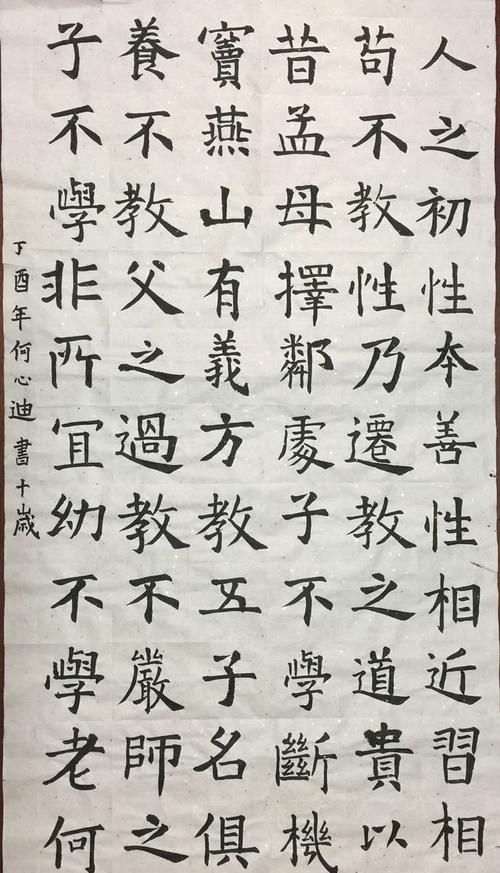 人之初性本善性相近習相
苟不教性乃遷教之道貴以
昔孟母擇鄰處子不學斷機
竇燕山有義方教五子名俱
養不教父之過教不嚴師之
子不學非所宜幼不學老何
丁酉年何心迪書十歲